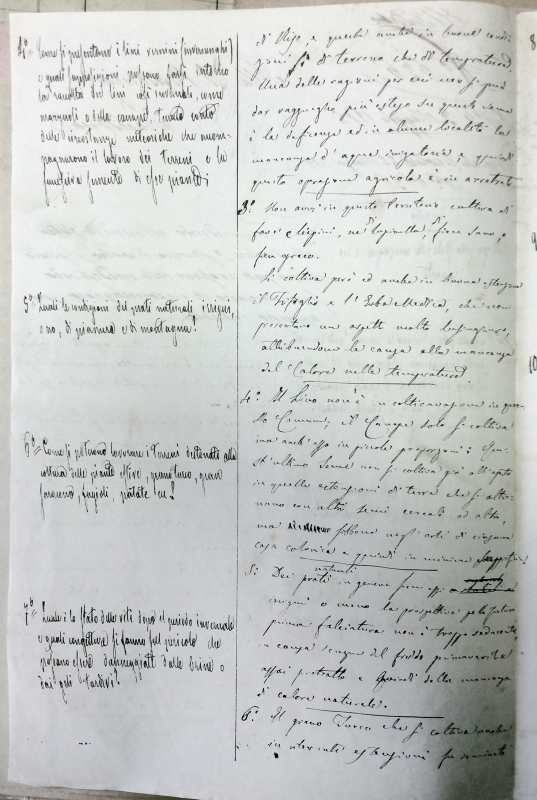 4º Come si presentano i lini vernini (invernenghi)
e quali previsioni possono farsi intorno
la raccolta dei lini così invernali, come
marzuoli e della canapa tenuto conto
delle circostanze meteoriche che accom-
pagnarono il lavoro dei terreni e la
successiva sementa di esse piante?
5º Quali le condizioni dei prati naturali irrigui,
o no, di pianura e di montagna?
6º Come si poterono lavorare i terreni destinati alla
coltura delle piante estive, granoturco, grano
saraceno, fagioli, patate ecc?
7º Quale è lo stato delle viti dopo il periodo invernale
e quali congetture si fanno sul pericolo che
possano essere danneggiati dalle brine o
dai geli tardivi?
di Riso, e questi anche in buone condi-
zioni di terreno che di temperatura.
Una delle ragioni per cui non si può
dar ragguaglio più esteso su questo seme
è la deficenza ed in alcune località la
mancanza d'acqua irrigatoria, e quindi
questa operazione agricola è in arretrato
3º. Non avvi in questo Territorio cultura di
fave e luppini, nè di lupinella, fieno sano, o
fien greco.
Si coltiva però ed anche in buona estenzione
il Trifoglio e l'Erba Medica, che non
presentano un aspetto molto lusinghiero,
attribuendone la causa alla mancanza
del Calore nelle temperature.
4º. Il Lino non è in colticavazione in que-
sto Comune, il Canape solo si coltiva
ma anch'esso in piccole proporzioni: Que-
st'ultimo seme non si coltiva già all'aperto
in quelle estenzioni di terra che si alter-
nano con altri semi cereali od altri,
ma sibbene negli orti di ciascuna
casa colonica e quindi in minime
5: Dei prati naturali in genere siano essi
irrigui o meno la prospettiva per la futura
prima falciatura non è troppo seducente
a causa sempre del freddo primaverile
assai protratto e quindi della mancanza
di calore naturale.
6º. Il grano Turco che si coltiva anche
in rilevanti estenzioni fu seminato
8
9
10